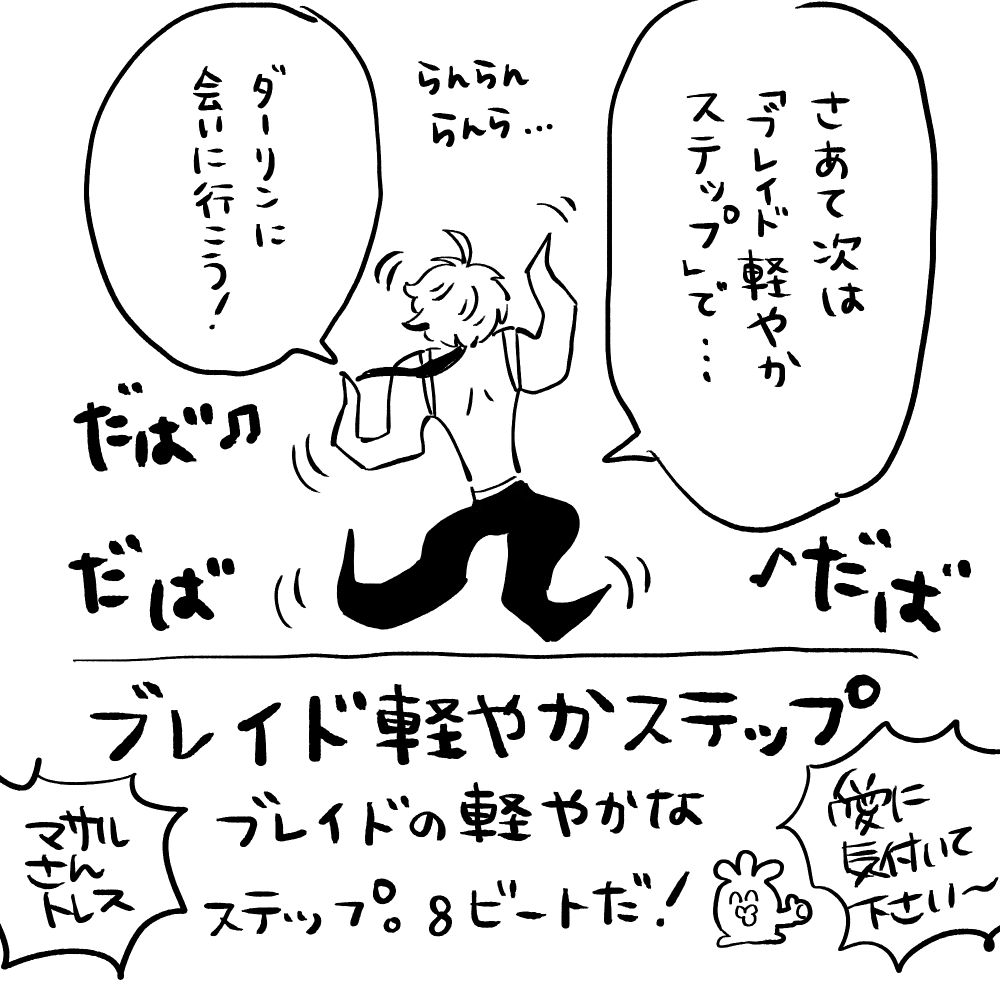 さあて次は
「ブレイド軽やか
ステップ」で…
らんらん
らんら…
ダーリンに
会いに行こう!
だば♫
だば
♪だば
ブレイド軽やかステップ
ブレイドの軽やかな
ステップ。8ビートだ!
マサル
さん
トレス
愛に
気付いて
下さい〜